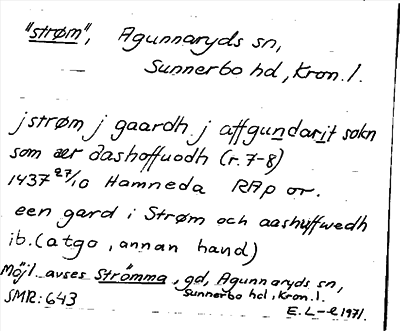 "strøm", Agunnaryds sn,
Sunnerbo hd, Kron. l.
j strøm j gaardh j affgundarit sokn
som ær dashoffuodh (r. 7-8)
1437 27/10 Hamneda RAp or.
een gard i Strøm och aashuffwedh
ib. (atgo, annan hand)
Möjl. avses Strömma, gd, Agunnaryds sn,
Sunnerbo hd, Kron. l.
SMR: 643
E. L-l 1971.